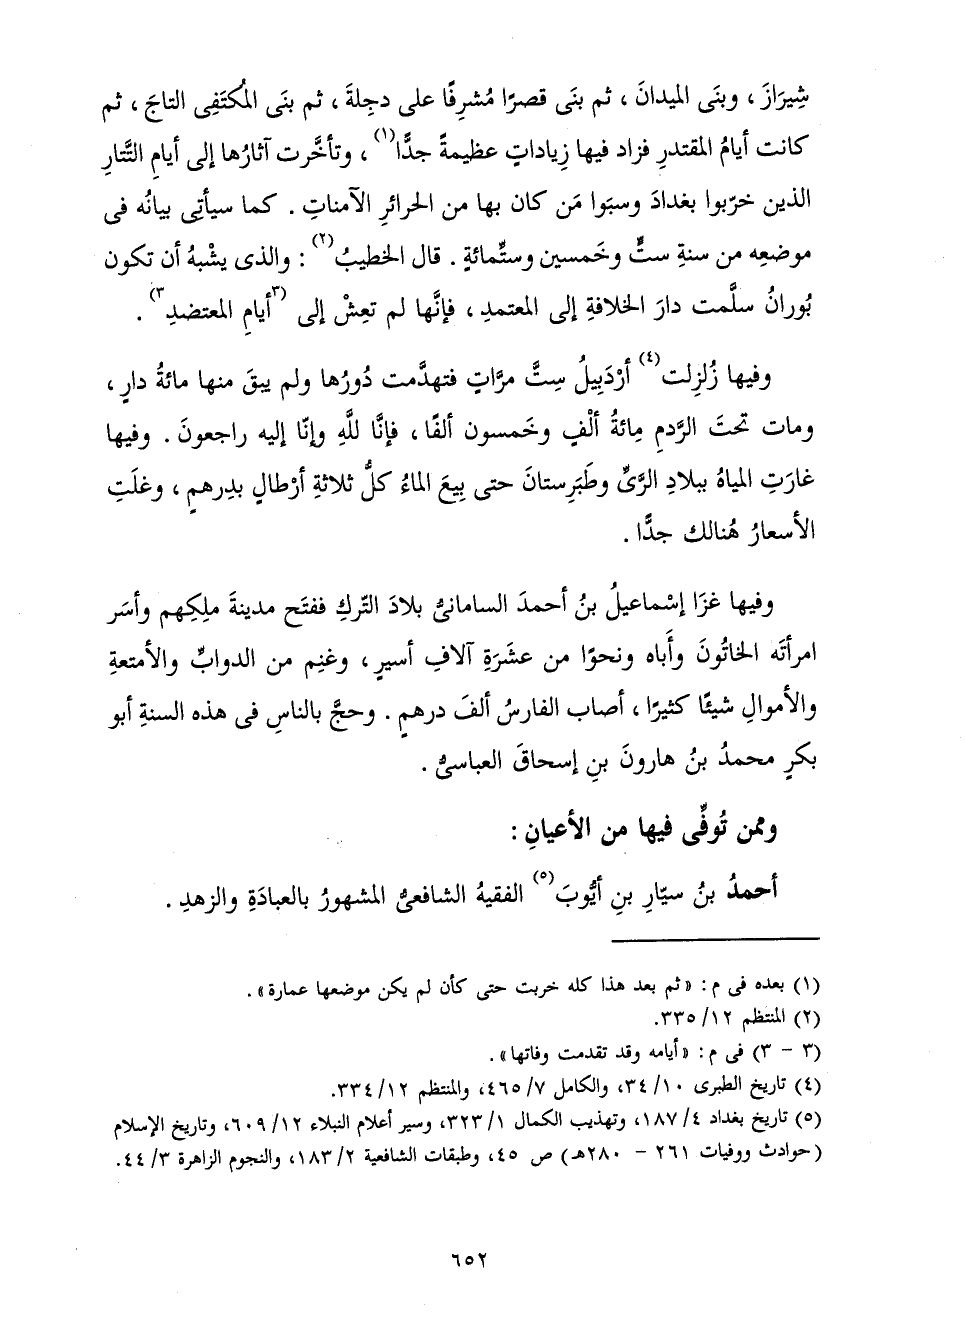 شِيرَازَ ، وبنَى الميدانَ ، ثم بنَى قصرًا مُشرِفًا على دجِلةَ ، ثم بنَى المُكتَفِى التاجَ ، ثم
كانت أيامُ المقتدرِ فزاد فيها زِياداتٍ عظيمةً جدًّا(١) ، وتأخَّرت آثارُها إلى أيامِ التَّتارِ
الذين خرّبوا بغدادَ وسبَوا مَن كان بها من الحرائرِ الآمناتِ . كما سيأتِى بيانُه فى
موضعِه من سنةِ ستٍّ وخَمسين وستِّمائةٍ . قال الخطيبُ(٢) : والذى يشْبهُ أن تكون
بُورانُ سلَّمت دارَ الخلافةِ إلى المعتمدِ ، فإنَّها لم تعِشْ إلى (٣أيامِ المعتضدِ٣) .
وفيها زُلزِلت(٤) أرْدَبِيلُ سِتَّ مرَّاتٍ فتهدَّمت دُورُها ولم يبقَ منها مائةُ دارٍ ،
ومات تحتَ الرَّدمِ مِائةُ ألْفٍ وخَمسون ألفًا ، فإنَّا للَّهِ وإنّا إليه راجعونَ . وفيها
غارَتِ المياهُ ببلادِ الرَّىِّ وطَبَرِستانَ حتى بِيعَ الماءُ كلُّ ثلاثةِ أرْطالٍ بدِرهمٍ ، وغلَتِ
الأسعارُ هُنالك جدًّا .
وفيها غزَا إسْماعيلُ بنُ أحمدَ السامانىُّ بلادَ التركِ ففتَح مدينةَ ملِكِهم وأسَر
امرأتَه الخاتُونَ وأَباه ونحوًا من عشَرَةِ آلافِ أسيرٍ ، وغنِم من الدوابِّ والأمتعةِ
والأموالِ شيئًا كثيرًا ، أصاب الفارسُ ألفَ درهمٍ . وحجَّ بالناسِ فى هذه السنةِ أبو
بكرٍ محمدُ بنُ هارونَ بنِ إسحاقَ العباسىُّ .
وممن تُوفِّى فيها من الأعيانِ :
أحمدُ بنُ سيّارِ بنِ أيُّوبَ(٥) الفقيهُ الشافعىُّ المشهورُ بالعبادَةِ والزهدِ .
(١) بعده فى م : «ثم بعد هذا كله خربت حتى كأن لم يكن موضعها عمارة» .
(٢) المنتظم ١٢/ ٣٣٥.
(٣ - ٣) فى م : «أيامه وقد تقدمت وفاتها» .
(٤) تاريخ الطبرى ١٠/ ٣٤، والكامل ٧/ ٤٦٥، والمنتظم ١٢/ ٣٣٤.
(٥) تاريخ بغداد ٤/ ١٨٧، وتهذيب الكمال ١/ ٣٢٣، وسير أعلام النبلاء ١٢/ ٦٠٩، وتاريخ الإسلام
(حوادث ووفيات ٢٦١ - ٢٨٠هـ) ص ٤٥، وطبقات الشافعية ٢/ ١٨٣، والنجوم الزاهرة ٣/ ٤٤.
٦٥٢